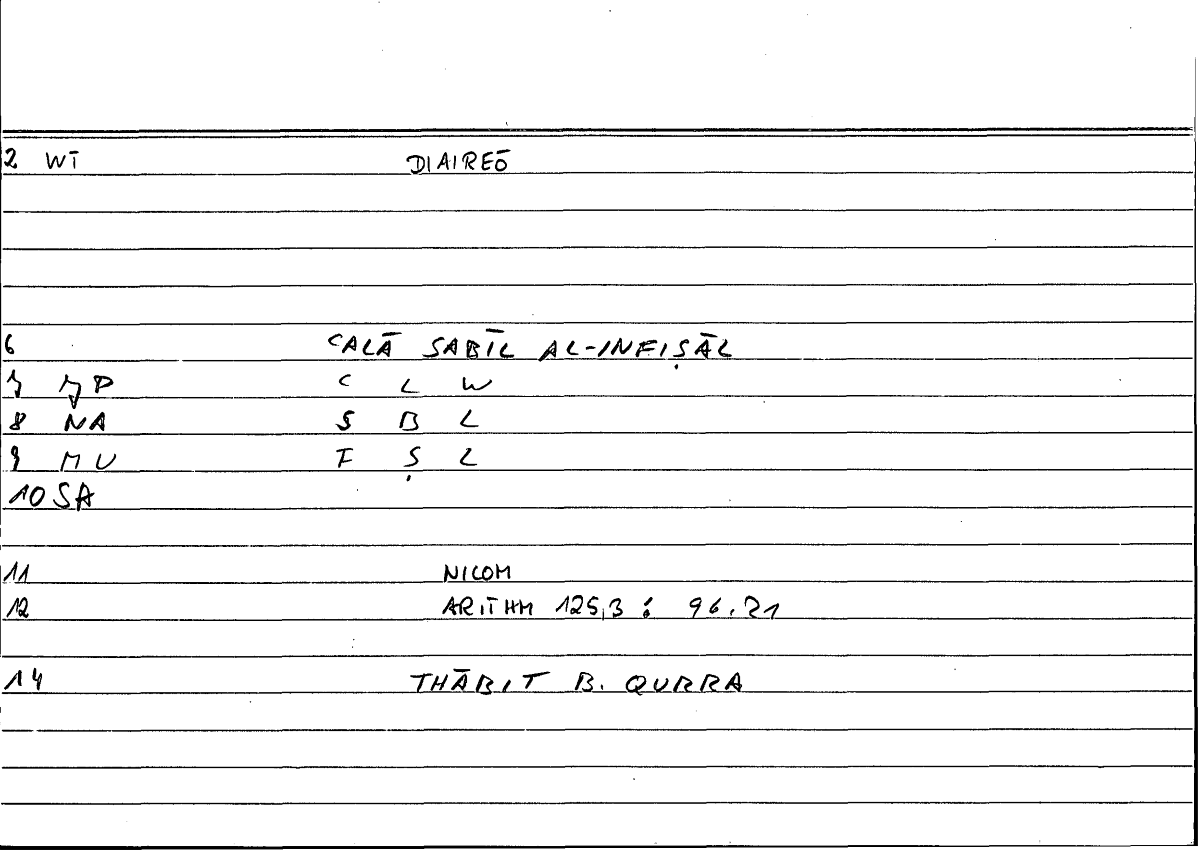 2 WĪ DIAIREŌ
6 ʿALĀ SABĪL AL-INFIṢĀL
7 P ʿ L W
8 NA S B L
9 MU F Ṣ L
10 SA
11 NICOM
12 ARITHM 125,3 : 96.21
14 THĀBIT B. QURRA